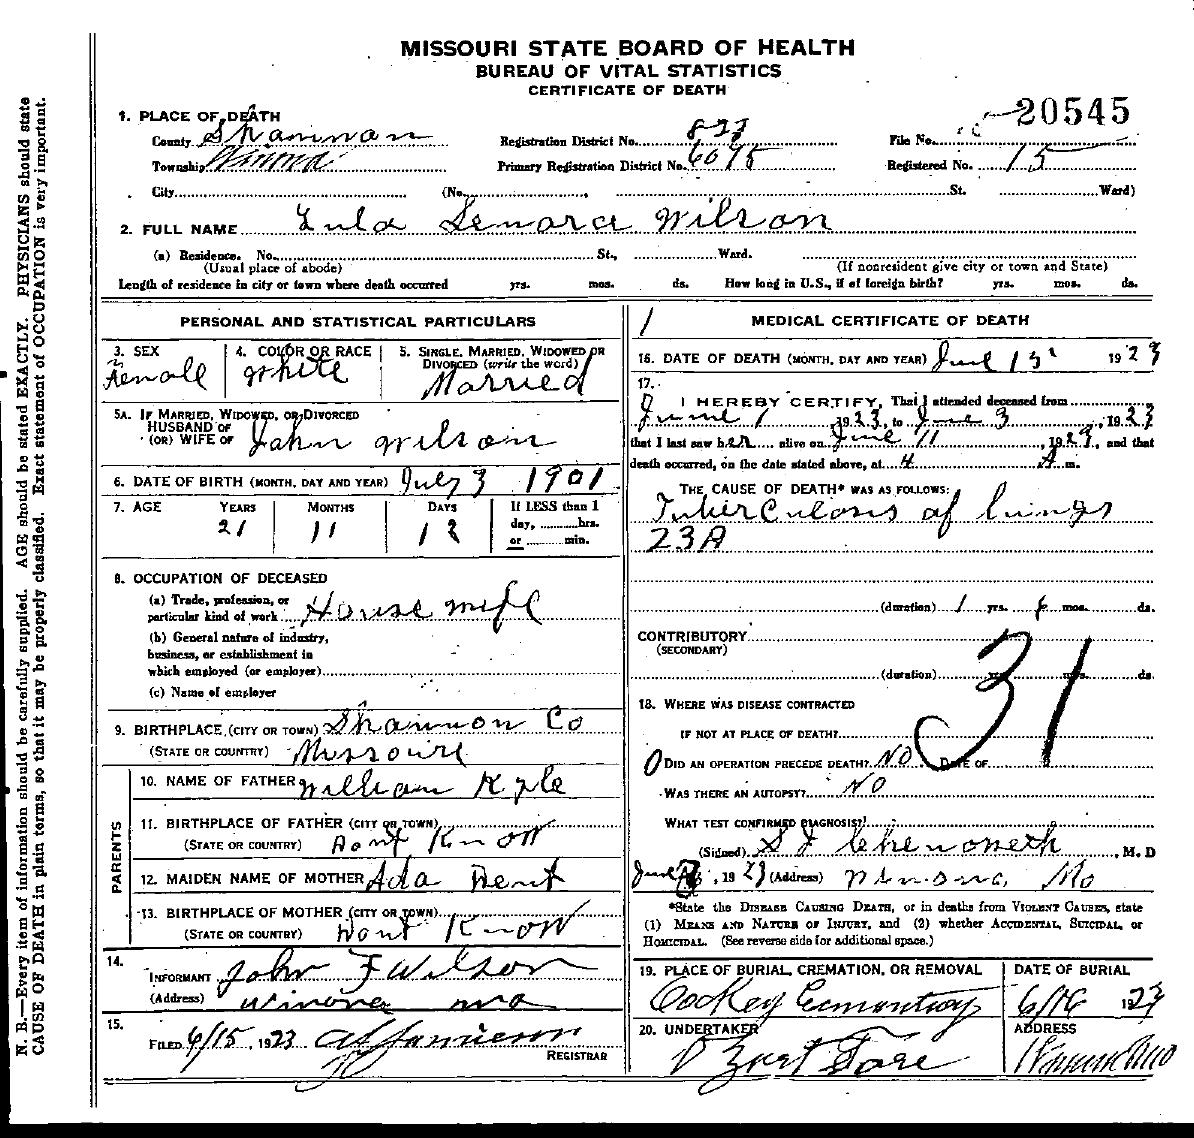 MISSOURI STATE BOARD OF HEALTH
BUREAU OF VITAL STATISTICS
CERTIFICATE OF DEATH
20545
1. PLACE OF DEATH
County Shannon Registration District No. 823 File No.
Township Winona Primary Registration District No. 6075 Registered No. 15
City (No. , St. Ward)
2. FULL NAME Lula Wilson
(a) Residence. No. St., Ward.
(Usual place of abode) (If nonresident give city or town and State)
Length of residence in city or town where death occurred yrs. mos. ds. How long in U.S., if of foreign birth? yrs. mos. ds.
PERSONAL AND STATISTICAL PARTICULARS
3. SEX
Femall
4. COLOR OR RACE
White
5. SINGLE, MARRIED, WIDOWED OR
DIVORCED (write the word)
Married
5A. IF MARRIED, WIDOWED, OR DIVORCED
HUSBAND OF
(OR) WIFE OF John Wilson
6. DATE OF BIRTH (MONTH, DAY AND YEAR) July 3 1901
7. AGE YEARS MONTHS DAYS If LESS than 1
day, hrs.
or min.
21 11 12
8. OCCUPATION OF DECEASED
(a) Trade, profession, or
particular kind of work House wife
(b) General nature of industry,
business, or establishment in
which employed (or employer)
(c) Name of employer
9. BIRTHPLACE (CITY OR TOWN) Shannon Co
(STATE OR COUNTRY) Missouri
PARENTS
10. NAME OF FATHER William Kyle
11. BIRTHPLACE OF FATHER (CITY OR TOWN)
(STATE OR COUNTRY) Dont Know
12. MAIDEN NAME OF MOTHER Ada Dent
13. BIRTHPLACE OF MOTHER (CITY OR TOWN)
(STATE OR COUNTRY) Dont Know
14.
INFORMANT John F Wilson
(Address) Winona Mo
15.
FILED 6/15, 1923
REGISTRAR
MEDICAL CERTIFICATE OF DEATH
16. DATE OF DEATH (MONTH, DAY AND YEAR) June 15 1923
17.
I HEREBY CERTIFY, That I attended deceased from
June 1 1923, to June 3, 1923
that I last saw her alive on June 11, 1923, and that
death occurred, on the date stated above, at 4 A m.
THE CAUSE OF DEATH* WAS AS FOLLOWS:
Tuberculosis of lungs
23A
(duration) 1 yrs. 6 mos. ds.
CONTRIBUTORY
(SECONDARY)
(duration) yrs. mos. ds.
31
18. WHERE WAS DISEASE CONTRACTED
IF NOT AT PLACE OF DEATH?
DID AN OPERATION PRECEDE DEATH? NO DATE OF
WAS THERE AN AUTOPSY? NO
WHAT TEST CONFIRMED DIAGNOSIS?
(Signed) Chenoweth, M. D
June, 1923 (Address) Winona, Mo
*State the DISEASE CAUSING DEATH, or in deaths from VIOLENT CAUSES, state
(1) MEANS AND NATURE OF INJURY, and (2) whether ACCIDENTAL, SUICIDAL, or
HOMICIDAL. (See reverse side for additional space.)
19. PLACE OF BURIAL, CREMATION, OR REMOVAL DATE OF BURIAL
6/16 1923
20. UNDERTAKER ADDRESS
Winona Mo
N. B.—Every item of information should be carefully supplied. AGE should be stated EXACTLY. PHYSICIANS should state
CAUSE OF DEATH in plain terms, so that it may be properly classified. Exact statement of OCCUPATION is very important.